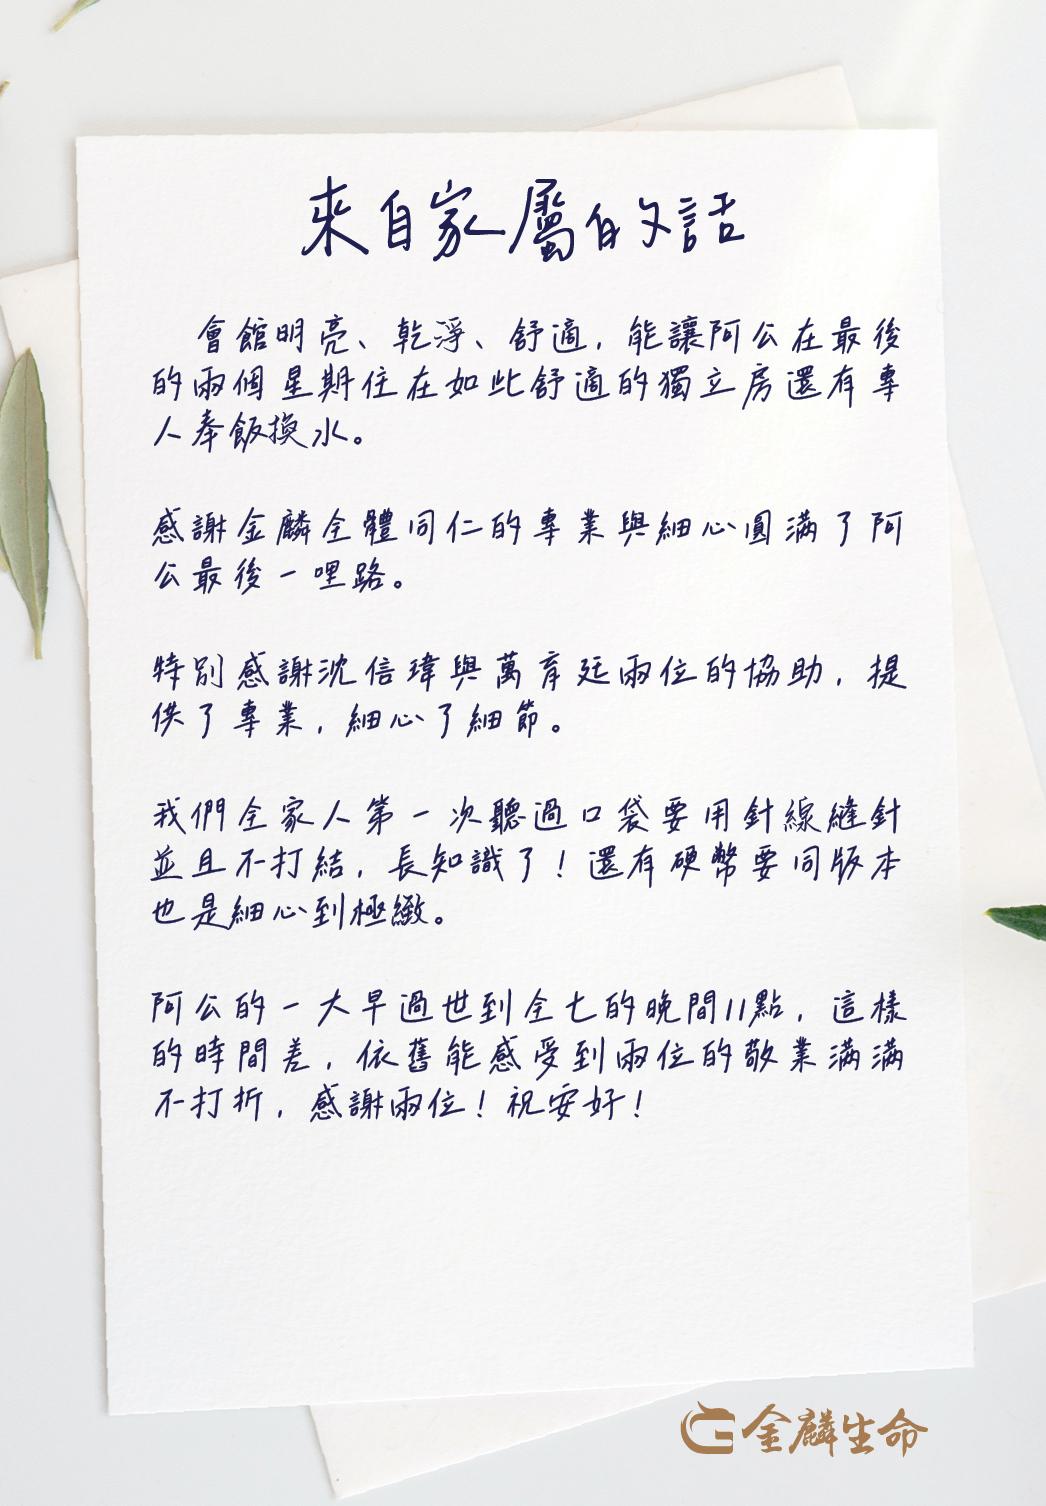 來自家屬的話
會館明亮、乾淨、舒適，能讓阿公在最後
的兩個星期住在如此舒適的獨立房還有專
人奉飯換水。
感謝金麟全體同仁的專業與細心圓滿了阿
公最後一哩路。
特別感謝沈信瑋與萬育廷兩位的協助，提
供了專業，細心了細節。
我們全家人第一次聽過口袋要用針線縫針
並且不打結，長知識了！還有硬幣要同版本
也是細心到極緻。
阿公的一大早過世到全七的晚間11點，這樣
的時間差，依舊能感受到兩位的敬業滿滿
不打折，感謝兩位！祝安好！
金麟生命